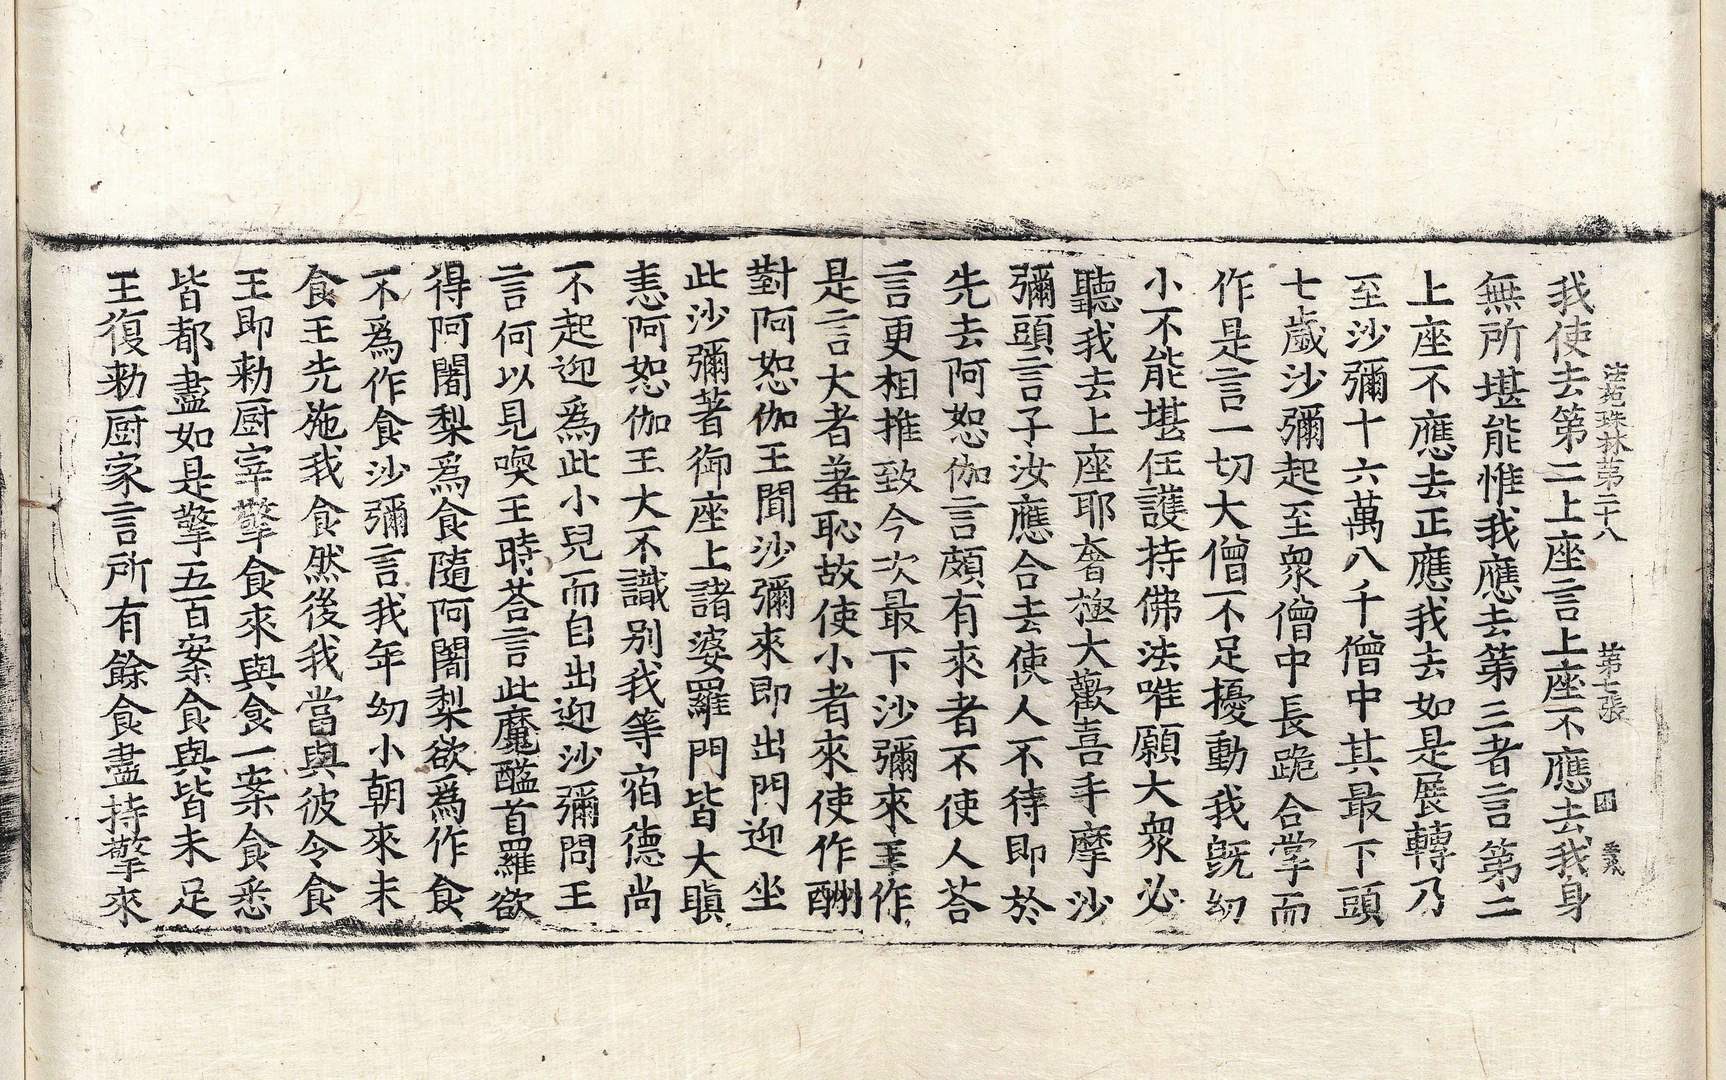 法苑珠林第二十八　第七張
我使去第二上座言上座不應去我身
無所堪能惟我應去第三者言第二
上座不應去正應我去如是展轉乃
至沙彌十六萬八千僧中其最下頭
七歲沙彌起至衆僧中長跪合掌而
作是言一切大僧不足擾動我旣幼
小不能堪任護持佛法唯願大衆必
聽我去上座耶奢極大歡喜手摩沙
彌頭言子汝應合去使人不待即於
先去阿恕伽言頗有來者不使人荅
言更相推致今次最下沙彌來王作
是言大者羞恥故使小者來使作酬
對阿恕伽王聞沙彌來即出門迎坐
此沙彌著御座上諸婆羅門皆大瞋
恚阿恕伽王大不識別我等宿德尚
不起迎爲此小兒而自出迎沙彌問王
言何以見喚王時荅言此魔醯首羅欲
得阿闍梨爲食隨阿闍梨欲爲作食
不爲作食沙彌言我年幼小朝來未
食王先施我食然後我當與彼令食
王即勑厨宰擎食來與食一案食悉
皆都盡如是擎五百案食與皆未足
王復勑厨家言所有餘食盡持擎來